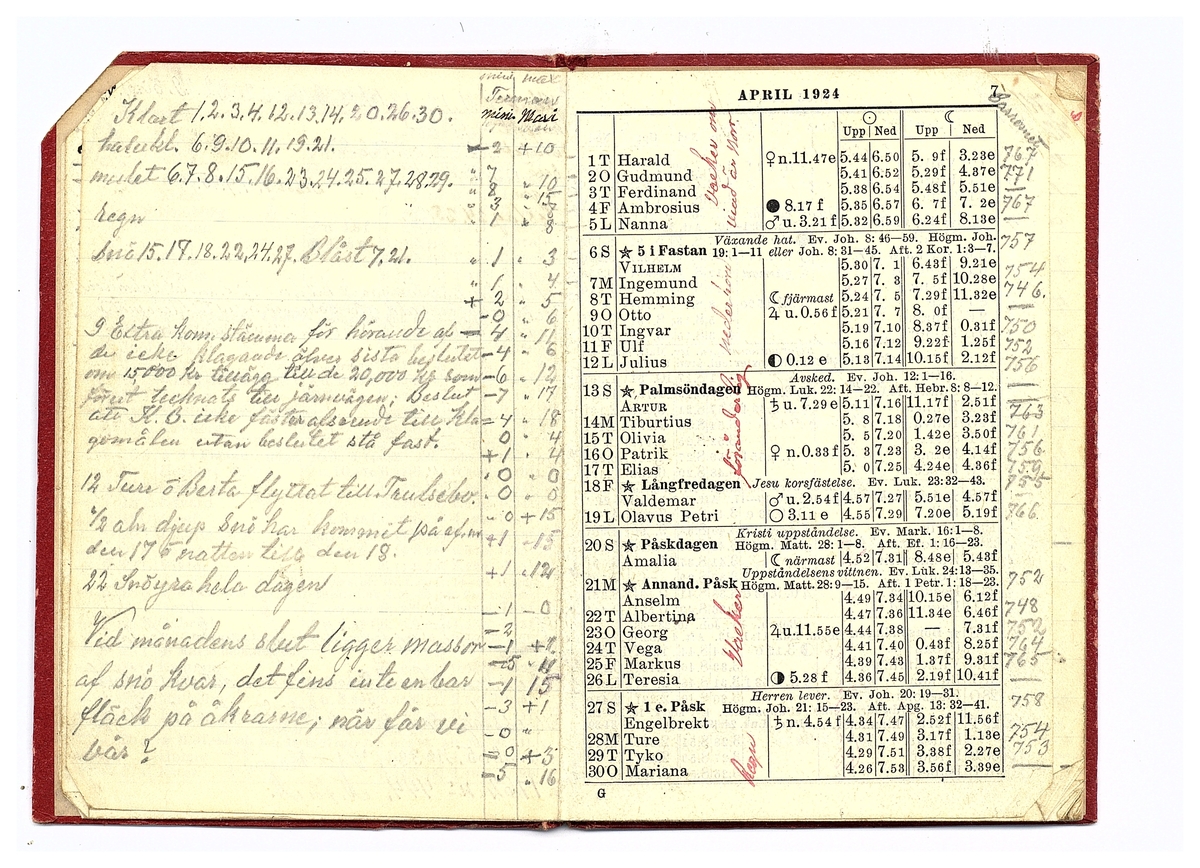 Klart 1.2.3.4.12.13.14.20.26.30.
halvkl. 6.9.10.11.19.21.
mulet 6.7.8.15.16.23.24.25.27.28.29.
regn
Snö 15.17.18.22.24.27. Blåst 7.21.
9 Extra kom.stämma för hörande af
de icke klagande öfver sista beslutet
om 15000 kr tillägg till de 20,000 kr som
förut tecknats till järnvägen; Beslut
att K. B. icke fäster afseende till kla
gomålen utan beslutet stå fast.
12 Ture ö Berta flyttat till Trulsebo.
1/2 aln djup snö har kommit på ef.m
den 17 ö natten till den 18.
22 Snöyra hela dagen
Vid månadens slut ligger massor
af snö kvar, det fins inte en bar
fläck på åkrarne; när får vi
vår?
mini max
Termom
mini Maxi
- 2 +10
" 7
" 8 " 10
" 3 " 5
" 1 " 8
" 1 " 3
" 1 " 4
+ 2 " 5
- 0 " 6
- 4 " 11
- 4 " 6
- 6 " 12
- 7 " 17
- 4 " 18
0 " 4
+1 " 4
" 0 " 0
" 0 " 0
" 0 +15
+1 - 15
+1 " 12
- 1 - 0
- 2
- 1 +2
- 5 " 11
- 1 15
- 3 +1
- 0 "
- 0 +3
- 5 " 16
APRIL 1924 7
Upp Ned Upp Ned
1 T Harald ♀ n.11.47e 5.44 6.50 5. 9f 3.23e 767
2 O Gudmund 5.41 6.52 5.29f 4.37e 771
3 T Ferdinand 5.38 6.54 5.48f 5.51e
4 F Ambrosius ● 8.17 f 5.35 6.57 6. 7f 7. 2e 767
5 L Nanna ♂ u. 3.21 f 5.32 6.59 6.24f 8.13e
Växande hat. Ev. Joh. 8: 46—59. Högm. Joh.
6 S ★ 5 i Fastan 19: 1—11 eller Joh. 8: 31—45. Aft. 2 Kor. 1: 3—7. 757
VILHELM 5.30 7. 1 6.43f 9.21e
7 M Ingemund 5.27 7. 3 7. 5f 10.28e 754
8 T Hemming ☾ fjärmast 5.24 7. 5 7.29f 11.32e 746.
9 O Otto ♃ u. 0.56 f 5.21 7. 7 8. 0f —
10 T Ingvar 5.19 7.10 8.37f 0.31f 750
11 F Ulf 5.16 7.12 9.22f 1.25f 752
12 L Julius ◐ 0.12 e 5.13 7.14 10.15f 2.12f 756
Avsked. Ev. Joh. 12: 1—16.
13 S ★ Palmsöndagen Högm. Luk. 22: 14—22. Aft. Hebr. 8: 8—12.
ARTUR ♄ u. 7.29 e 5.11 7.16 11.17f 2.51f 763
14 M Tiburtius 5. 8 7.18 0.27e 3.23f
15 T Olivia 5. 5 7.20 1.42e 3.50f 761
16 O Patrik ♀ n. 0.33 f 5. 3 7.23 3. 2e 4.14f 756
17 T Elias 5. 0 7.25 4.24e 4.36f 759
18 F ★ Långfredagen Jesu korsfästelse. Ev. Luk. 23: 32—43. 755
Valdemar ♂ u. 2.54 f 4.57 7.27 5.51e 4.57f
19 L Olavus Petri ○ 3.11 e 4.55 7.29 7.20e 5.19f 766
Kristi uppståndelse. Ev. Mark. 16: 1—8.
20 S ★ Påskdagen Högm. Matt. 28: 1—8. Aft. Ef. 1: 16—23.
Amalia ☾ närmast 4.52 7.31 8.48e 5.43f
Uppståndelsens vittnen. Ev. Luk. 24: 13—35.
21 M ★ Annand. Påsk Högm. Matt. 28: 9—15. Aft. 1 Petr. 1: 18—23. 752
Anselm 4.49 7.34 10.15e 6.12f
22 T Albertina 4.47 7.36 11.34e 6.46f 748
23 O Georg ♃ u. 11.55e 4.44 7.38 — 7.31f 752
24 T Vega 4.41 7.40 0.43f 8.25f 764
25 F Markus 4.39 7.43 1.37f 9.31f 765
26 L Teresia ◑ 5.28 f 4.36 7.45 2.19f 10.41f
Herren lever. Ev. Joh. 20: 19—31.
27 S ★ 1 e. Påsk Högm. Joh. 21: 15—23. Aft. Apg. 13: 32—41. 758
Engelbrekt ♄ n. 4.54 f 4.34 7.47 2.52f 11.56f
28 M Ture 4.31 7.49 3.17f 1.13e 754
29 T Tyko 4.29 7.51 3.38f 2.27e 753
30 O Mariana 4.26 7.53 3.56f 3.39e
G
Vacker om
vind är Norr
föränderlig
Vackert
Regn